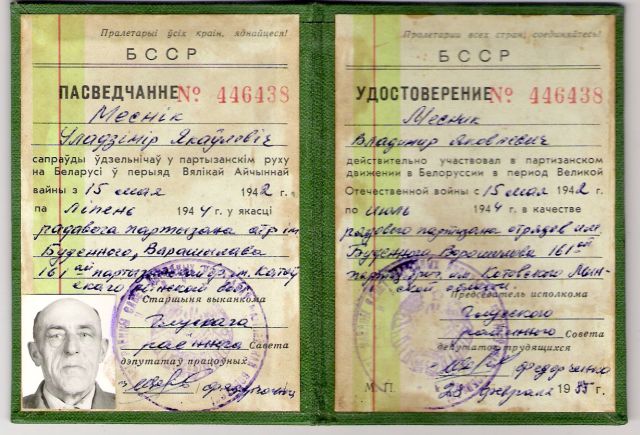 Пралетарыі ўсіх краін, яднайцеся!
БССР
ПАСВЕДЧАННЕ № 446438
Меснік
Уладзімір Якаўлевіч
сапраўды ўдзельнічаў у партызанскім руху
на Беларусі ў перыяд Вялікай Айчыннай
вайны з 15 мая 1942 г.
па Ліпень 1944 г. у якасці
радавога партызана атр. ім.
Буденного, Варашилава
161ай партызанскай ім. Катоўскага
Старшыня выканкома
Глускага
раённага Савета
дэпутатаў працоўных
Пролетарии всех стран, соединяйтесь!
БССР
УДОСТОВЕРЕНИЕ № 446438
Месник
Владимир Яковлевич
действительно участвовал в партизанском
движении в Белоруссии в период Великой
Отечественной войны с 15 мая 1942 г.
по июль 1944 г. в качестве
рядового партизана отрядов им.
Буденного, Ворошилова 161ой
им. Котовского Минской области
Председатель исполкома
Глусского
районного Совета
депутатов трудящихся
Федорченко
М. П. 28 февраля 1985 г.